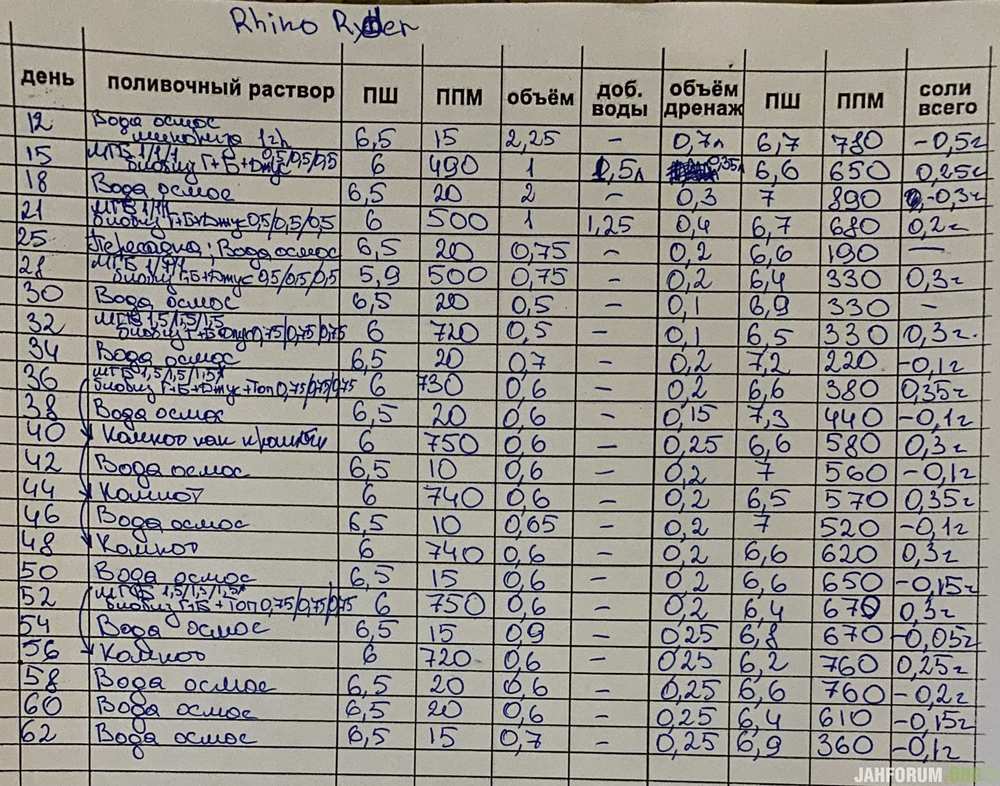 Rhino Ryder
день поливочный раствор ПШ ППМ объём доб. воды объём дренаж ПШ ППМ соли всего
12 Вода осмос 1г/л 6,5 15 2,25 – 0,7л 6,7 780 -0,5г
15 МГБ 1/1/1 биобиз Г+Б+Джус 0,5/0,5/0,5 6 490 1 1,5л 0,35л 6,6 650 0,25г
18 Вода осмос 6,5 20 2 – 0,3 7 890 -0,3г
21 МГБ 1/1/1 биобиз Г+Б+Джус 0,5/0,5/0,5 6 500 1 1,25 0,4 6,7 680 0,2г
25 Пересадка; Вода осмос 6,5 20 0,75 – 0,2 6,6 190 —
28 МГБ 1/1/1 биобиз Г+Б+Джус 0,5/0,5/0,5 5,9 500 0,75 – 0,2 6,4 330 0,3г
30 Вода осмос 6,5 20 0,5 – 0,1 6,9 330 –
32 МГБ 1,5/1,5/1,5 биобиз Г+Б+Джус 0,75/0,75/0,75 6 720 0,5 – 0,1 6,5 330 0,3г.
34 Вода осмос 6,5 20 0,7 – 0,2 7,2 220 -0,1г
36 МГБ 1,5/1,5/1,5 биобиз Г+Б+Джус+Топ 0,75/0,75/0,75 6 730 0,6 – 0,2 6,6 380 0,35г
38 Вода осмос 6,5 20 0,6 – 0,15 7,3 440 -0,1г
40 Компот как 6 750 0,6 – 0,25 6,6 580 0,3г
42 Вода осмос 6,5 10 0,6 – 0,2 7 560 -0,1г
44 Компот 6 740 0,6 – 0,2 6,5 570 0,35г
46 Вода осмос 6,5 10 0,65 – 0,2 7 520 -0,1г
48 Компот 6 740 0,6 – 0,2 6,6 620 0,3г
50 Вода осмос 6,5 15 0,6 – 0,2 6,6 650 -0,15г
52 МГБ 1,5/1,5/1,5 биобиз Г+Б+Топ 0,75/0,75/0,75 6 750 0,6 – 0,2 6,4 670 0,3г
54 Вода осмос 6,5 15 0,9 – 0,25 6,8 670 -0,05г
56 Компот 6 720 0,6 – 0,25 6,2 760 0,25г
58 Вода осмос 6,5 20 0,6 – 0,25 6,6 760 -0,2г
60 Вода осмос 6,5 20 0,6 – 0,25 6,4 610 -0,15г
62 Вода осмос 6,5 15 0,7 – 0,25 6,9 360 -0,1г
JAHFORUM.ORG